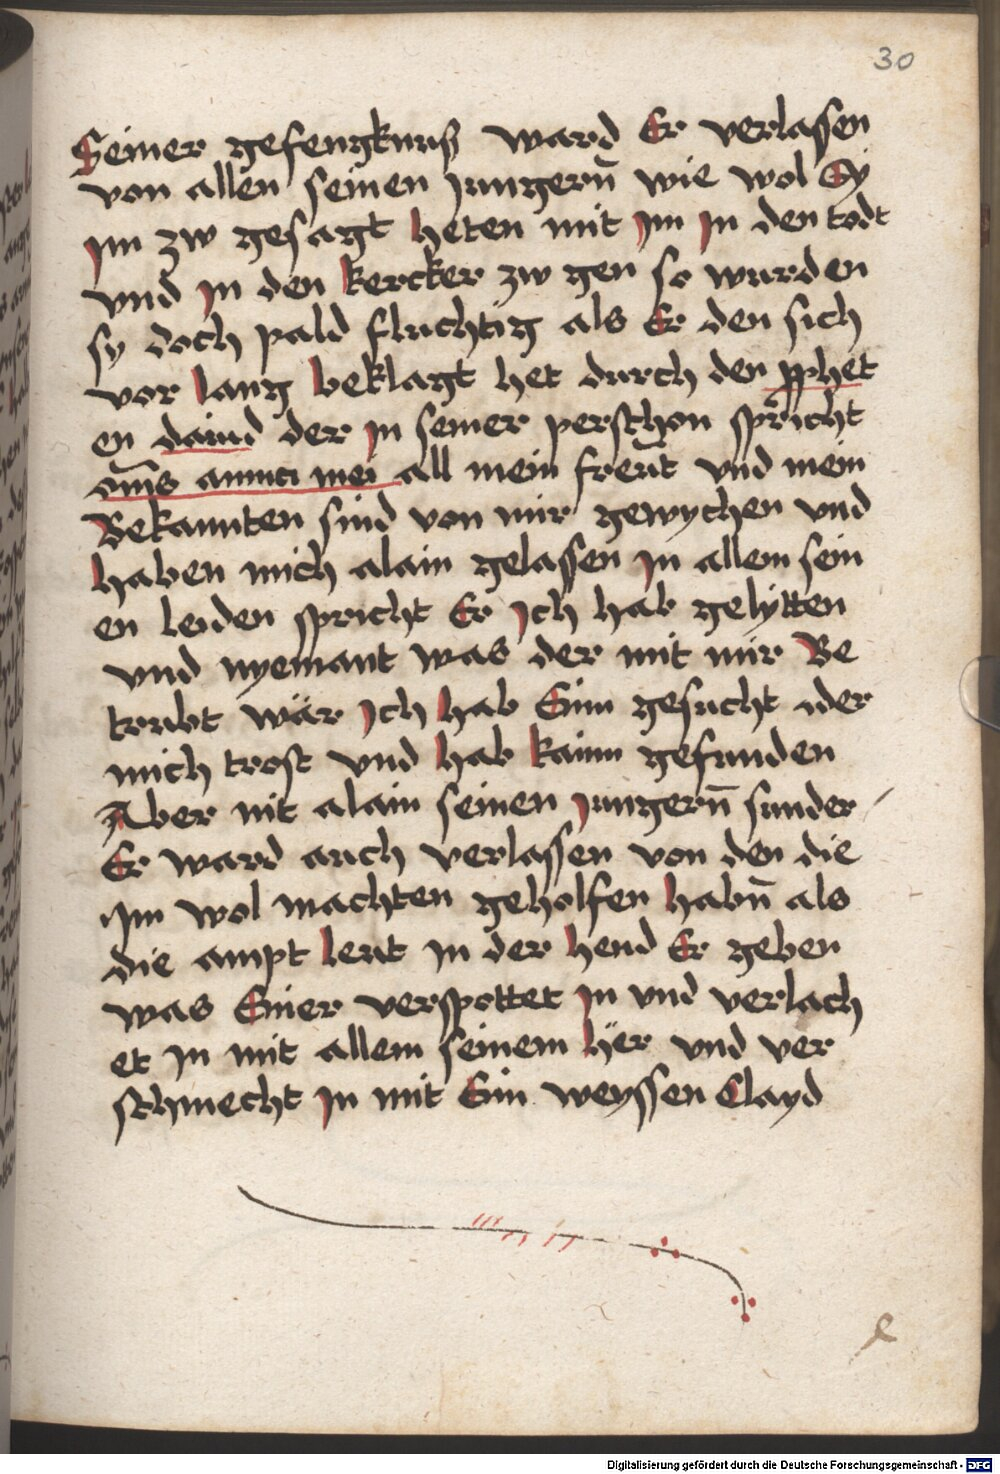 30
Seiner gefengknuß ward Er verlassen
von allen seinen Jungern̄ wie wol Sy
im zw gesagt heten mit im in den todt
vnd in den kercker zw gen so wurden
sy doch pald fluchtig als Er den sich
vor lang beklagt het durch den pphet
en dauid der in seiner perschon spricht
om̄s amici mei all mein freūt vnd mein
Bekannten sind von mir gewychen vnd
haben mich alain gelassen in allem sein
en leiden spricht Er ich hab gelytten
vnd nyemant was der mit mir Be
trubt wär ich hab Einn gesucht der
mich trost vnd hab kainn gefunden
Aber nit alain seinen Jungern̄ sunder
Er ward auch verlassen von den die
im wol machten geholfen habn̄ als
die ampt leut in der hend Er geben
was Einer verspottet in vnd verlach
et in mit allem seinem hër vnd ver
schmecht in mit Ein weyssen Clayd
Digitalisierung gefördert durch die Deutsche Forschungsgemeinschaft - DFG